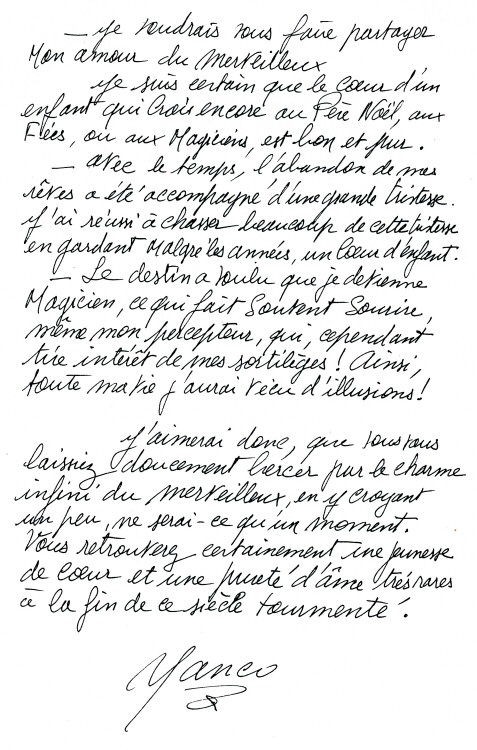 — Je voudrais vous faire partager
Mon amour du Merveilleux
Je suis certain que le Cœur d'un
enfant qui Crois encore au Père Noël, aux
Fées, ou aux Magiciens, est bon et pur.
— Avec le temps, l'abandon de mes
rêves a été accompagné d'une grande tristesse.
J'ai réussi à chasser beaucoup de cette tristesse
en gardant Malgré les années, un Cœur d'enfant.
— Le destin a voulu que je devienne
Magicien, ce qui fait Souvent Sourire,
même mon percepteur, qui, cependant
tire intérêt de mes sortilèges ! Ainsi,
toute ma vie j'aurai vécu d'illusions !
J'aimerai donc, que vous vous
laissiez doucement bercer par le charme
infini du merveilleux, en y croyant
un peu, ne serai-ce qu'un moment.
Vous retrouverez certainement une jeunesse
de cœur et une pureté d'âme très rares
à la fin de ce siècle tourmenté.
Yanco